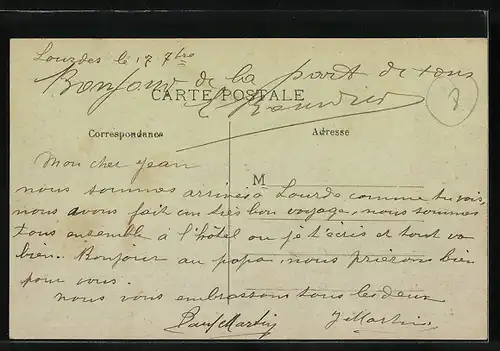 Lourdes le 17 7bre
Bonjour de la part de tous
CARTE POSTALE
Correspondance
Adresse
Mon cher Jean
M
nous sommes arrivés à Lourde comme tu vois,
nous avons fait un très bon voyage, nous sommes
tous ensemble à l'hôtel ou je t'écris et tout va
bien. Bonjour au papa, nous prierons bien
pour vous.
nous vous embrassons tous les deux
Paul Martin J Martin